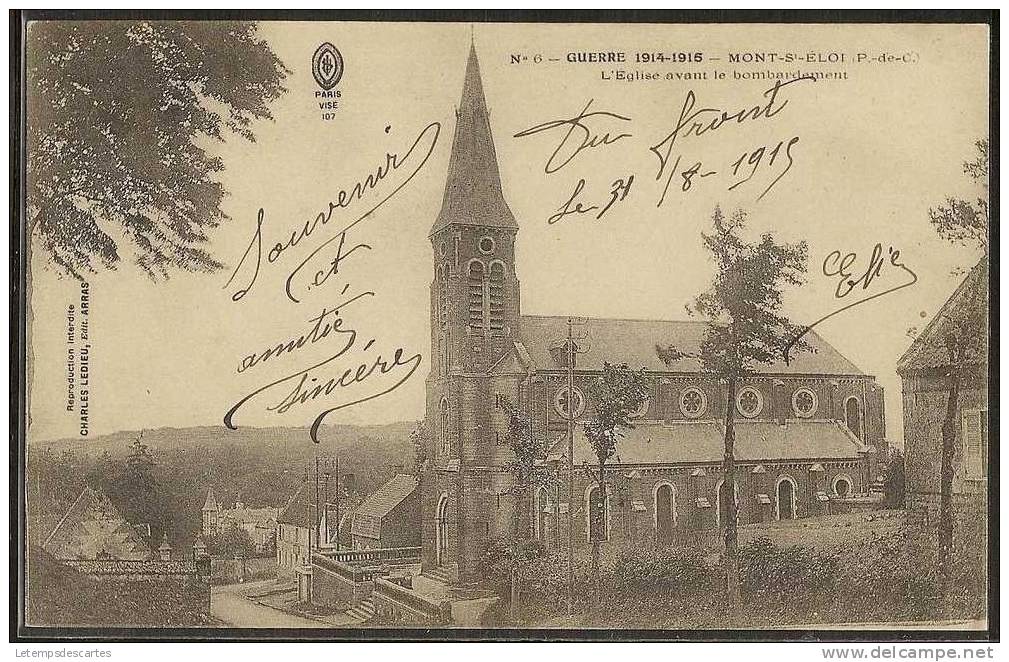 N° 6 — GUERRE 1914-1915 — MONT-St-ÉLOI (P.-de-C.)
L'Eglise avant le bombardement
PARIS
VISE
107
Du front
Le 31/8-1915
Souvenir
et
amitié
sincère
Reproduction Interdite
CHARLES LEDIEU, Edit. ARRAS
Letempsdescartes
delcampe.net